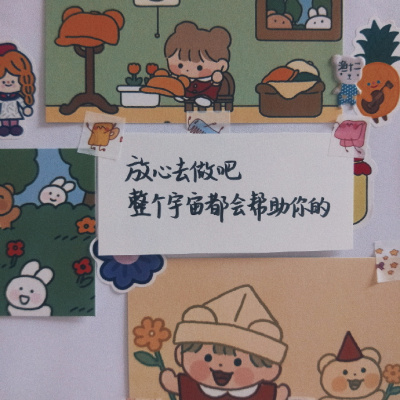 放心去做吧
整个宇宙都会帮助你的